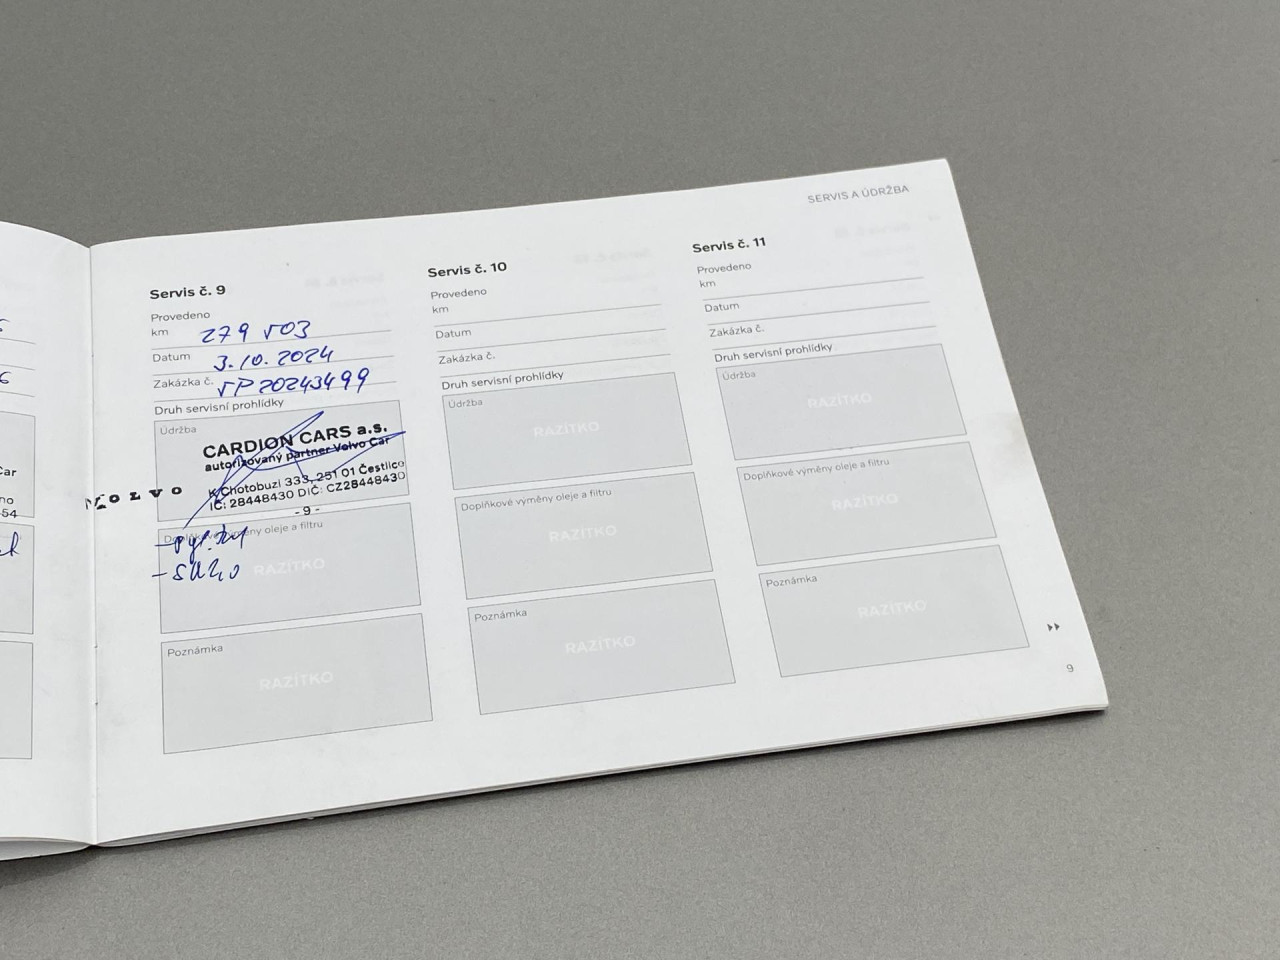 SERVIS A ÚDRŽBA
Servis č. 9
Provedeno
km 279 503
Datum 3.10.2024
Zakázka č. VP20243499
Druh servisní prohlídky
Údržba
CARDION CARS a.s.
autorizovaný partner Volvo Car
K Chotobuzi 333, 251 01 Čestlice
IČ: 28448430 DIČ: CZ28448430
- 9 -
VOLVO
Doplňkové výměny oleje a filtru
RAZÍTKO
Poznámka
RAZÍTKO
Servis č. 10
Provedeno
km
Datum
Zakázka č.
Druh servisní prohlídky
Údržba
RAZÍTKO
Doplňkové výměny oleje a filtru
RAZÍTKO
Poznámka
RAZÍTKO
Servis č. 11
Provedeno
km
Datum
Zakázka č.
Druh servisní prohlídky
Údržba
RAZÍTKO
Doplňkové výměny oleje a filtru
RAZÍTKO
Poznámka
RAZÍTKO
9